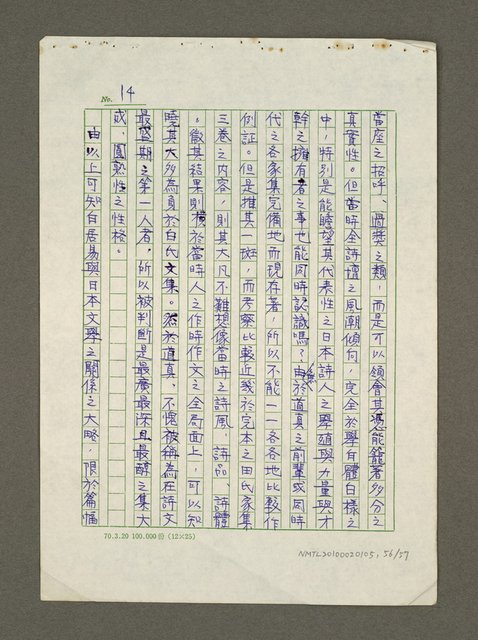 No. 14
當座之招呼、應獎之類，而是可以領會其憑能籠著多分之
真實性。但當時全詩壇之風潮傾向，完全於學白體白樣之
中，特別是能瞻望其代表性之日本詩人之學殖與力量與才
幹之擁有者之事也能同時認識嗎？由於道真之前輩或同時
代之各家集完備地而現存著，所以不能一一各各地比較作
例証。但是推其一斑，而考察比較近幾於完本之田氏家集
三卷之內容，則其大凡不難想像當時之詩風、詩品、詩體
。徵其結果則橫於當時人之作時作文之全局面上，可以知
曉其大多為負於白氏文集。於道真、不愧被稱為在詩文
最盛期之第一人者，所以被判斷是最廣最深且最醇之集大
成、圓熟性之性格。
由以上可知白居易與日本文學之關係之大略，限於篇幅
70.3.20 100.000份 (12×25)
NMTL20100020105, 56/57